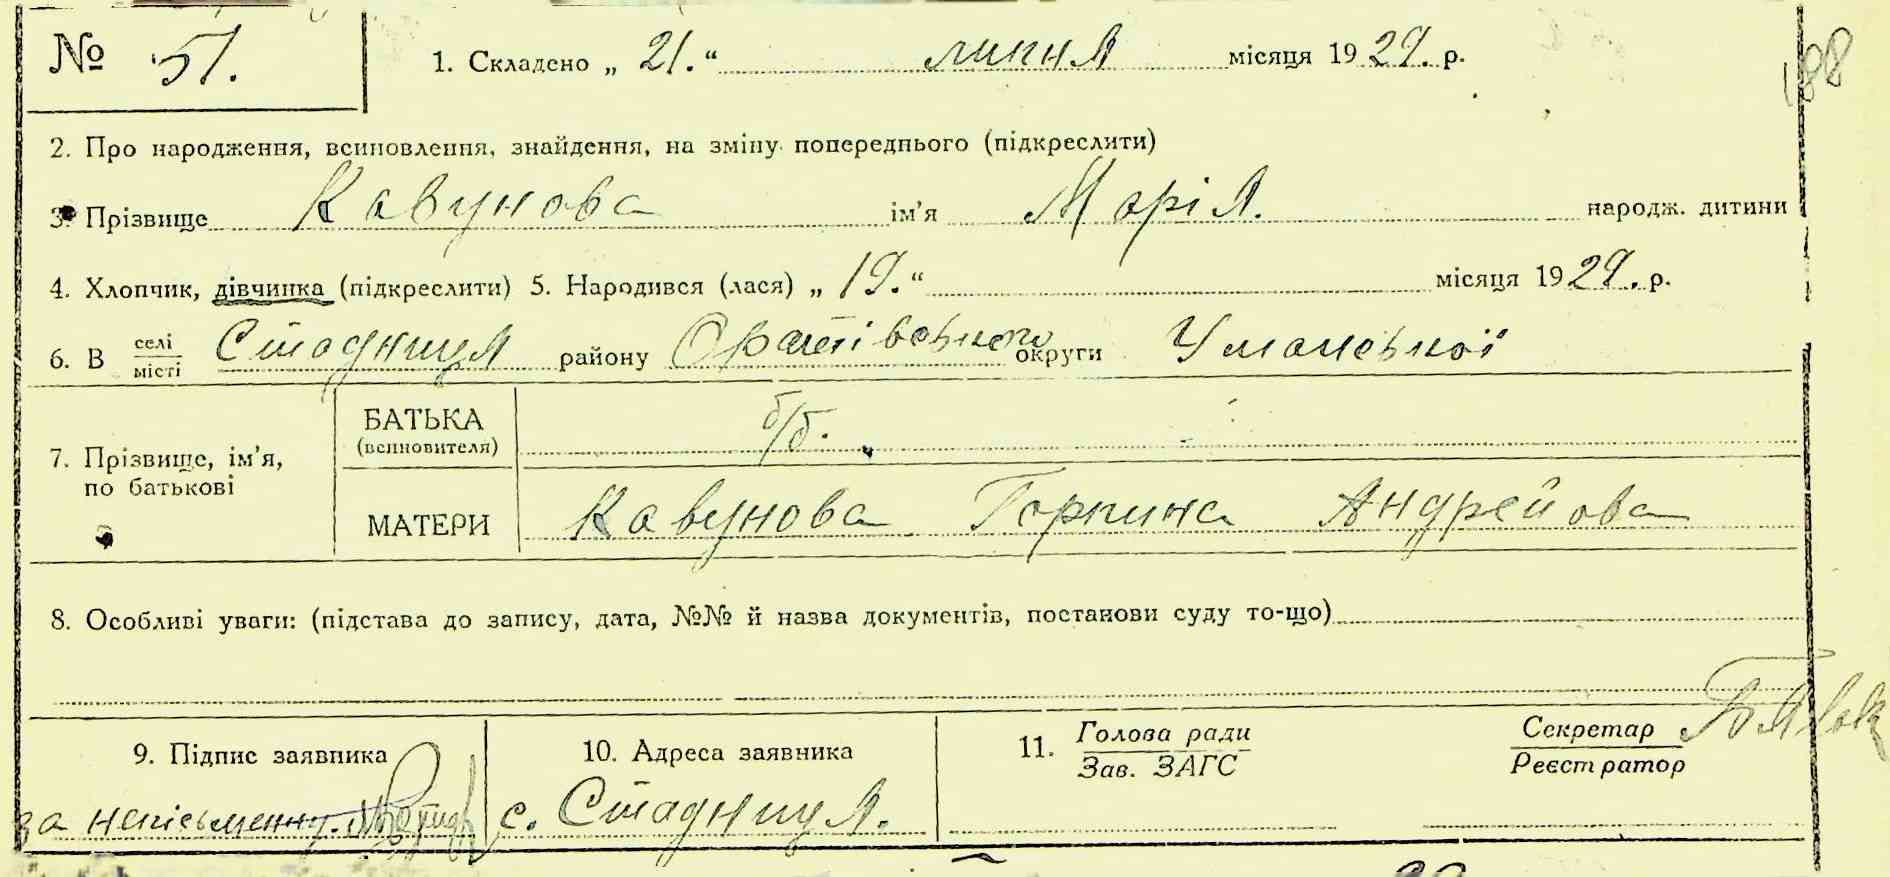 № 51. 1. Складено „ 21. “ липня місяця 1929. р.
188
2. Про народження, всиновлення, знайдення, на зміну попереднього (підкреслити)
3. Прізвище Кавунова ім’я Марія. народж. дитини
4. Хлопчик, дівчинка (підкреслити) 5. Народився (лася) „ 19. “ місяця 1929. р.
6. В селі місті Стадниця району Оратівського округи Уманської
7. Прізвище, ім’я, по батькові
БАТЬКА (всиновителя) б/б.
МАТЕРИ Кавунова Горпина Андрейова
8. Особливі уваги: (підстава до запису, дата, №№ й назва документів, постанови суду то-що)
9. Підпис заявника
за неписьменну.
10. Адреса заявника
с. Стадниця.
11. Голова ради
Зав. ЗАГС
Секретар
Реєстратор